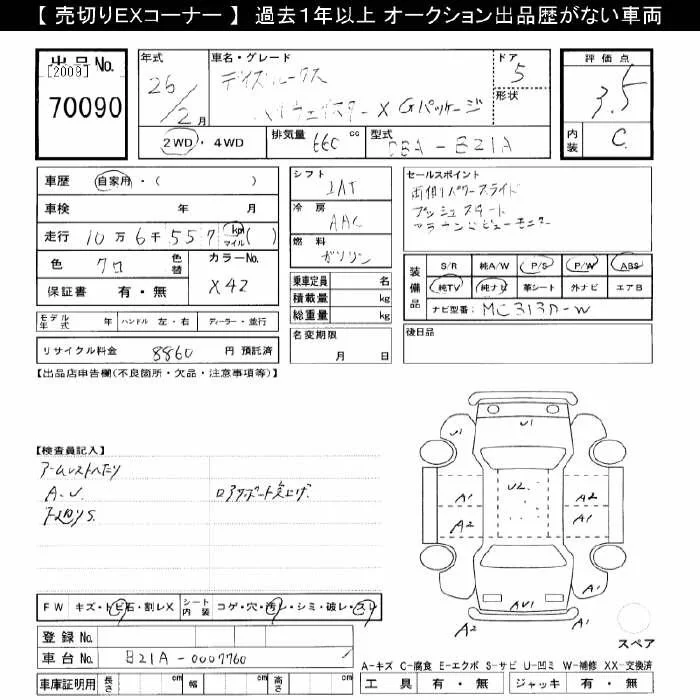 【 売切りEXコーナー 】 過去１年以上 オークション出品歴がない車両
出品No. [2009] 70090
年式 26/2月
車名・グレード デイズルークス ハイウェイスターX Gパッケージ
ドア 5
形状
2WD・4WD 排気量 660 cc 型式 DBA-B21A
評価点 3.5
内装 C
車歴 自家用・( )
車検 年 月
走行 10万6千557 km マイル ( )
色 クロ 色替 カラーNo. X42
保証書 有・無
モデル年式 年 ハンドル 左・右 ディーラー・並行
リサイクル料金 8860 円 預託済
シフト IAT
冷房 AAC
燃料 ガソリン
乗車定員 名
積載量 kg
総重量 kg
名変期限 月 日
セールスポイント
両側パワースライド
プッシュスタート
アラウンドビューモニター
装備品 S/R 純A/W P/S P/W ABS
純TV 純ナビ 革シート 外ナビ エアB
ナビ型番 MC313D-W
後日品
【出品店申告欄(不良箇所・欠品・注意事項等)】
【検査員記入】
アームレストヘたり
A.U.
ロアサポート突上げ
FW キズ・トビ石・割レX シート内装 コゲ・穴・汚レ・シミ・破レ・スレ
登録No.
車台No. B21A-0007760
車庫証明用 長さ cm 幅 cm 高さ cm
U1
U1
U2
A1
A2
A2
A1
A1
AU1
A2
A1
スペア
A-キズ C-腐食 E-エクボ S-サビ U-凹ミ W-補修 XX-交換済
工具 有・無 ジャッキ 有・無